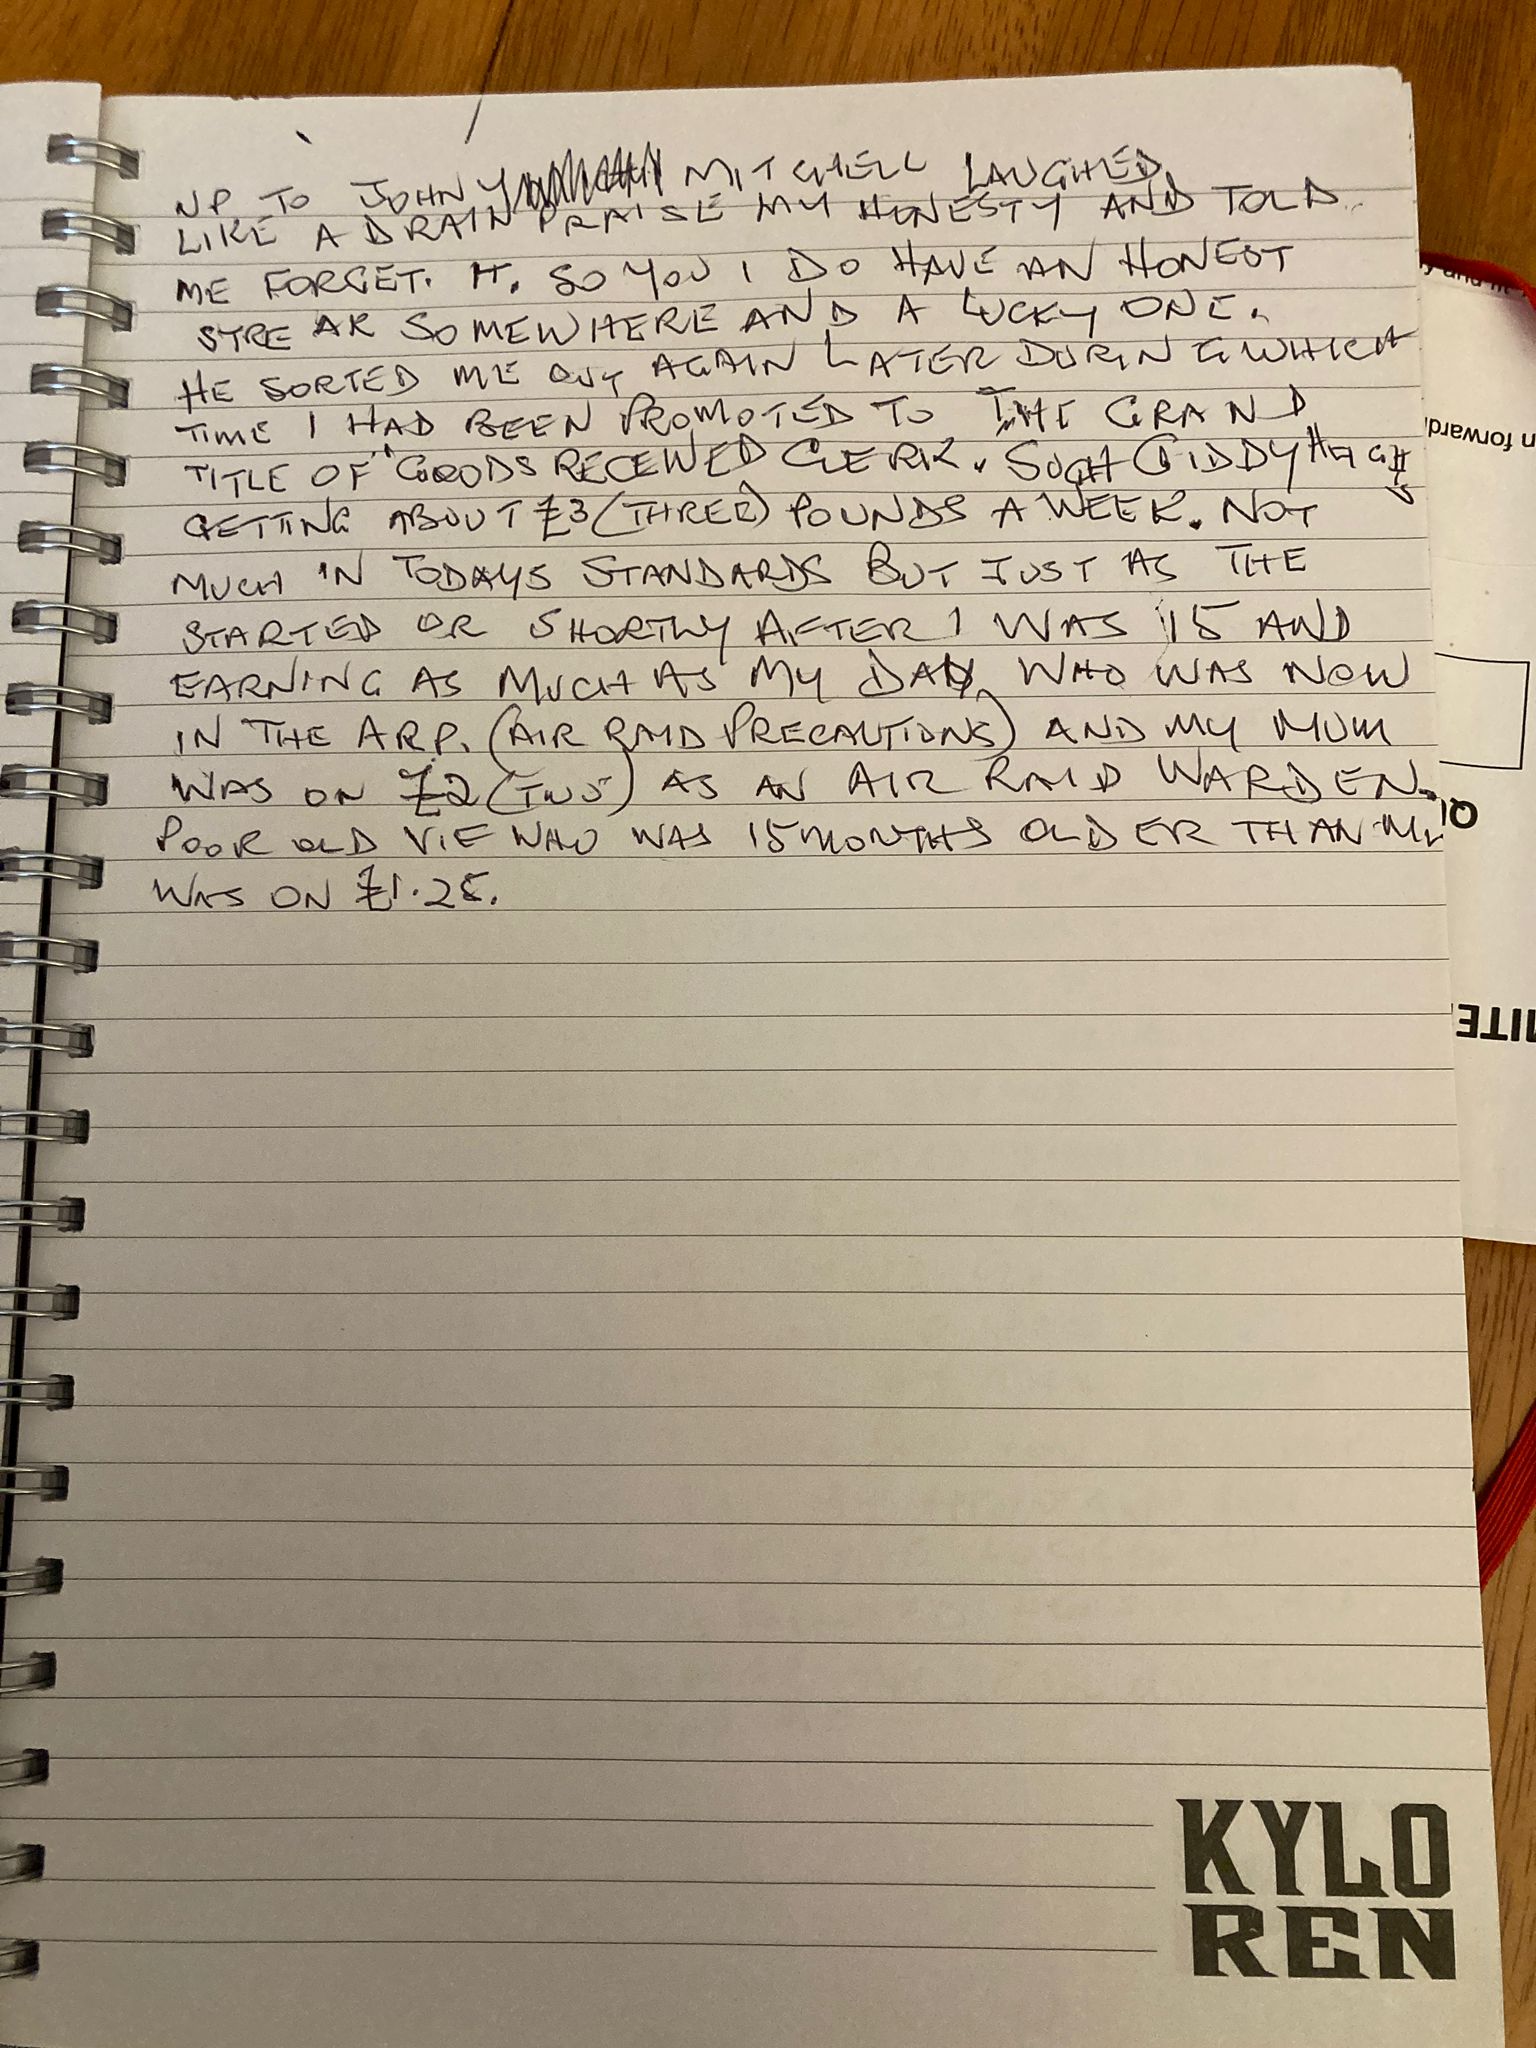 UP TO JOHNY MITCHELL LAUGHED
LIKE A DRAIN PRAISE MY HONESTY AND TOLD
ME FORGET. IT. SO YOU I DO HAVE AN HONEST
STRE AK SOMEWHERE AND A LUCKY ONE.
HE SORTED ME OUT AGAIN LATER DURING WHICH
TIME I HAD BEEN PROMOTED TO THE GRAND
TITLE OF "GOODS RECEIVED CLERK. SUCH GIDDY HEIGHTS
GETTING ABOUT £3 (THREE) POUNDS A WEEK. NOT
MUCH IN TODAYS STANDARDS BUT JUST AS THE
STARTED OR SHORTLY AFTER I WAS 15 AND
EARNING AS MUCH AS MY DAD WHO WAS NOW
IN THE ARP. (AIR RAID PRECAUTIONS) AND MY MUM
WAS ON £2 (TWO) AS AN AIR RAID WARDEN.
POOR OLD VIE WHO WAS 15 MONTHS OLDER THAN ME
WAS ON £1.25.
n forward
KYLO
REN